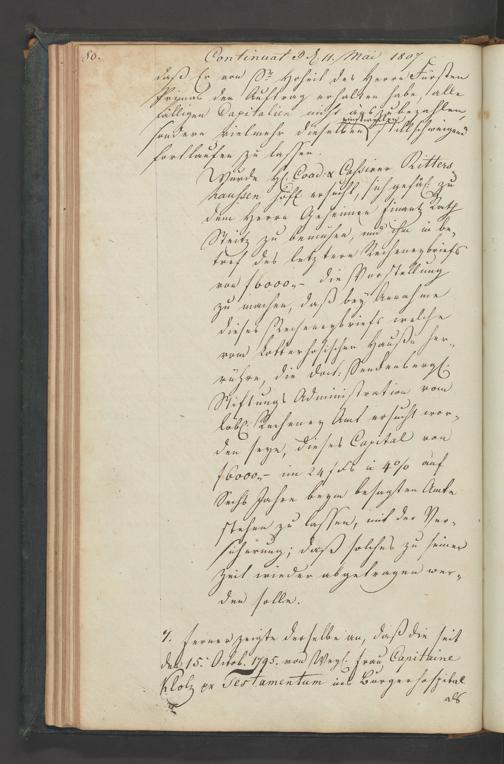 80.
Continuat. d. d. 11. Mai 1807
daß Er von Sr. Hoheit des Herrn Fürsten
Primas den Auftrag erhalten habe alle
fälligen Capitalien nicht auszubezahlen,
sondern vielmehr dieselben stillschweigend
fortlaufen zu lassen.
Wurde H. Coad. & Cassirer Ritters
haussen höfl. ersucht, sich gefäl. zu
dem Herrn Geheimen Finanz Rath
Steitz zu bemühen, und ihm in be-
tref des letztern Rechneybriefs
von f 6000,- die Vorstellung
zu machen, daß bey Annahme
dieses Rechneybriefs welche
vom Hause her-
rühre, die doct: Senckenbergl.
Stiftungs Administration vom
löbl. Rechney Amt ersucht wor-
den seye, dieses Capital von
f 6000,- im 24 f Fs à 4% auf
Sechs Jahre beym besagten Amte
stehen zu lassen, mit der Ver-
sicherung; daß solches zu seiner
Zeit wieder abgetragen wer-
den solle.
7. Ferner zeigte derselbe an, daß die seit
den 15. Octob. 1795. von Weyl. Frau Capitaine
Klotz per Testamentum ins Bürgerhospital
als